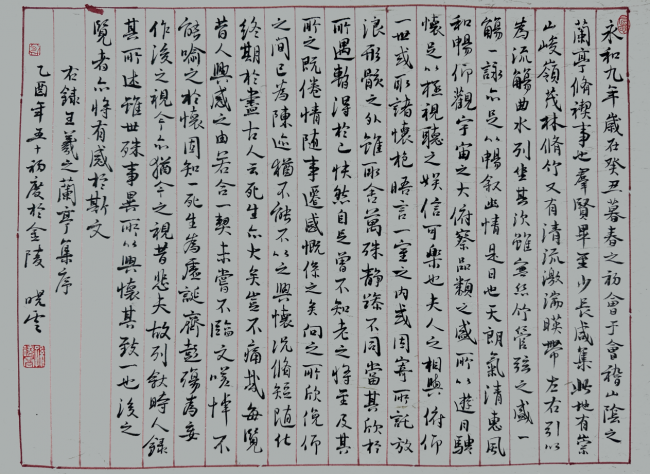 永和九年歲在癸丑暮春之初會于會稽山陰之
蘭亭脩禊事也羣賢畢至少長咸集此地有崇
山峻嶺茂林脩竹又有清流激湍暎帶左右引以
為流觴曲水列坐其次雖無絲竹管弦之盛一
觴一詠亦足以暢叙幽情是日也天朗氣清惠風
和暢仰觀宇宙之大俯察品類之盛所以遊目騁
懷足以極視聽之娛信可樂也夫人之相與俯仰
一世或取諸懷抱晤言一室之內或因寄所託放
浪形骸之外雖取舍萬殊靜躁不同當其欣於
所遇暫得於己快然自足曾不知老之將至及其
所之既倦情随事遷感慨係之矣向之所欣俛仰
之間已為陳迹猶不能不以之興懷況脩短随化
終期於盡古人云死生亦大矣豈不痛哉每覽
昔人興感之由若合一契未嘗不臨文嗟悼不
能喻之於懷固知一死生為虛誕齊彭殤為妄
作後之視今亦猶今之視昔悲夫故列叙時人錄
其所述雖世殊事異所以興懷其致一也後之
覽者亦將有感於斯文
右錄王羲之蘭亭集序
乙酉年五十初度於金陵 曉雲